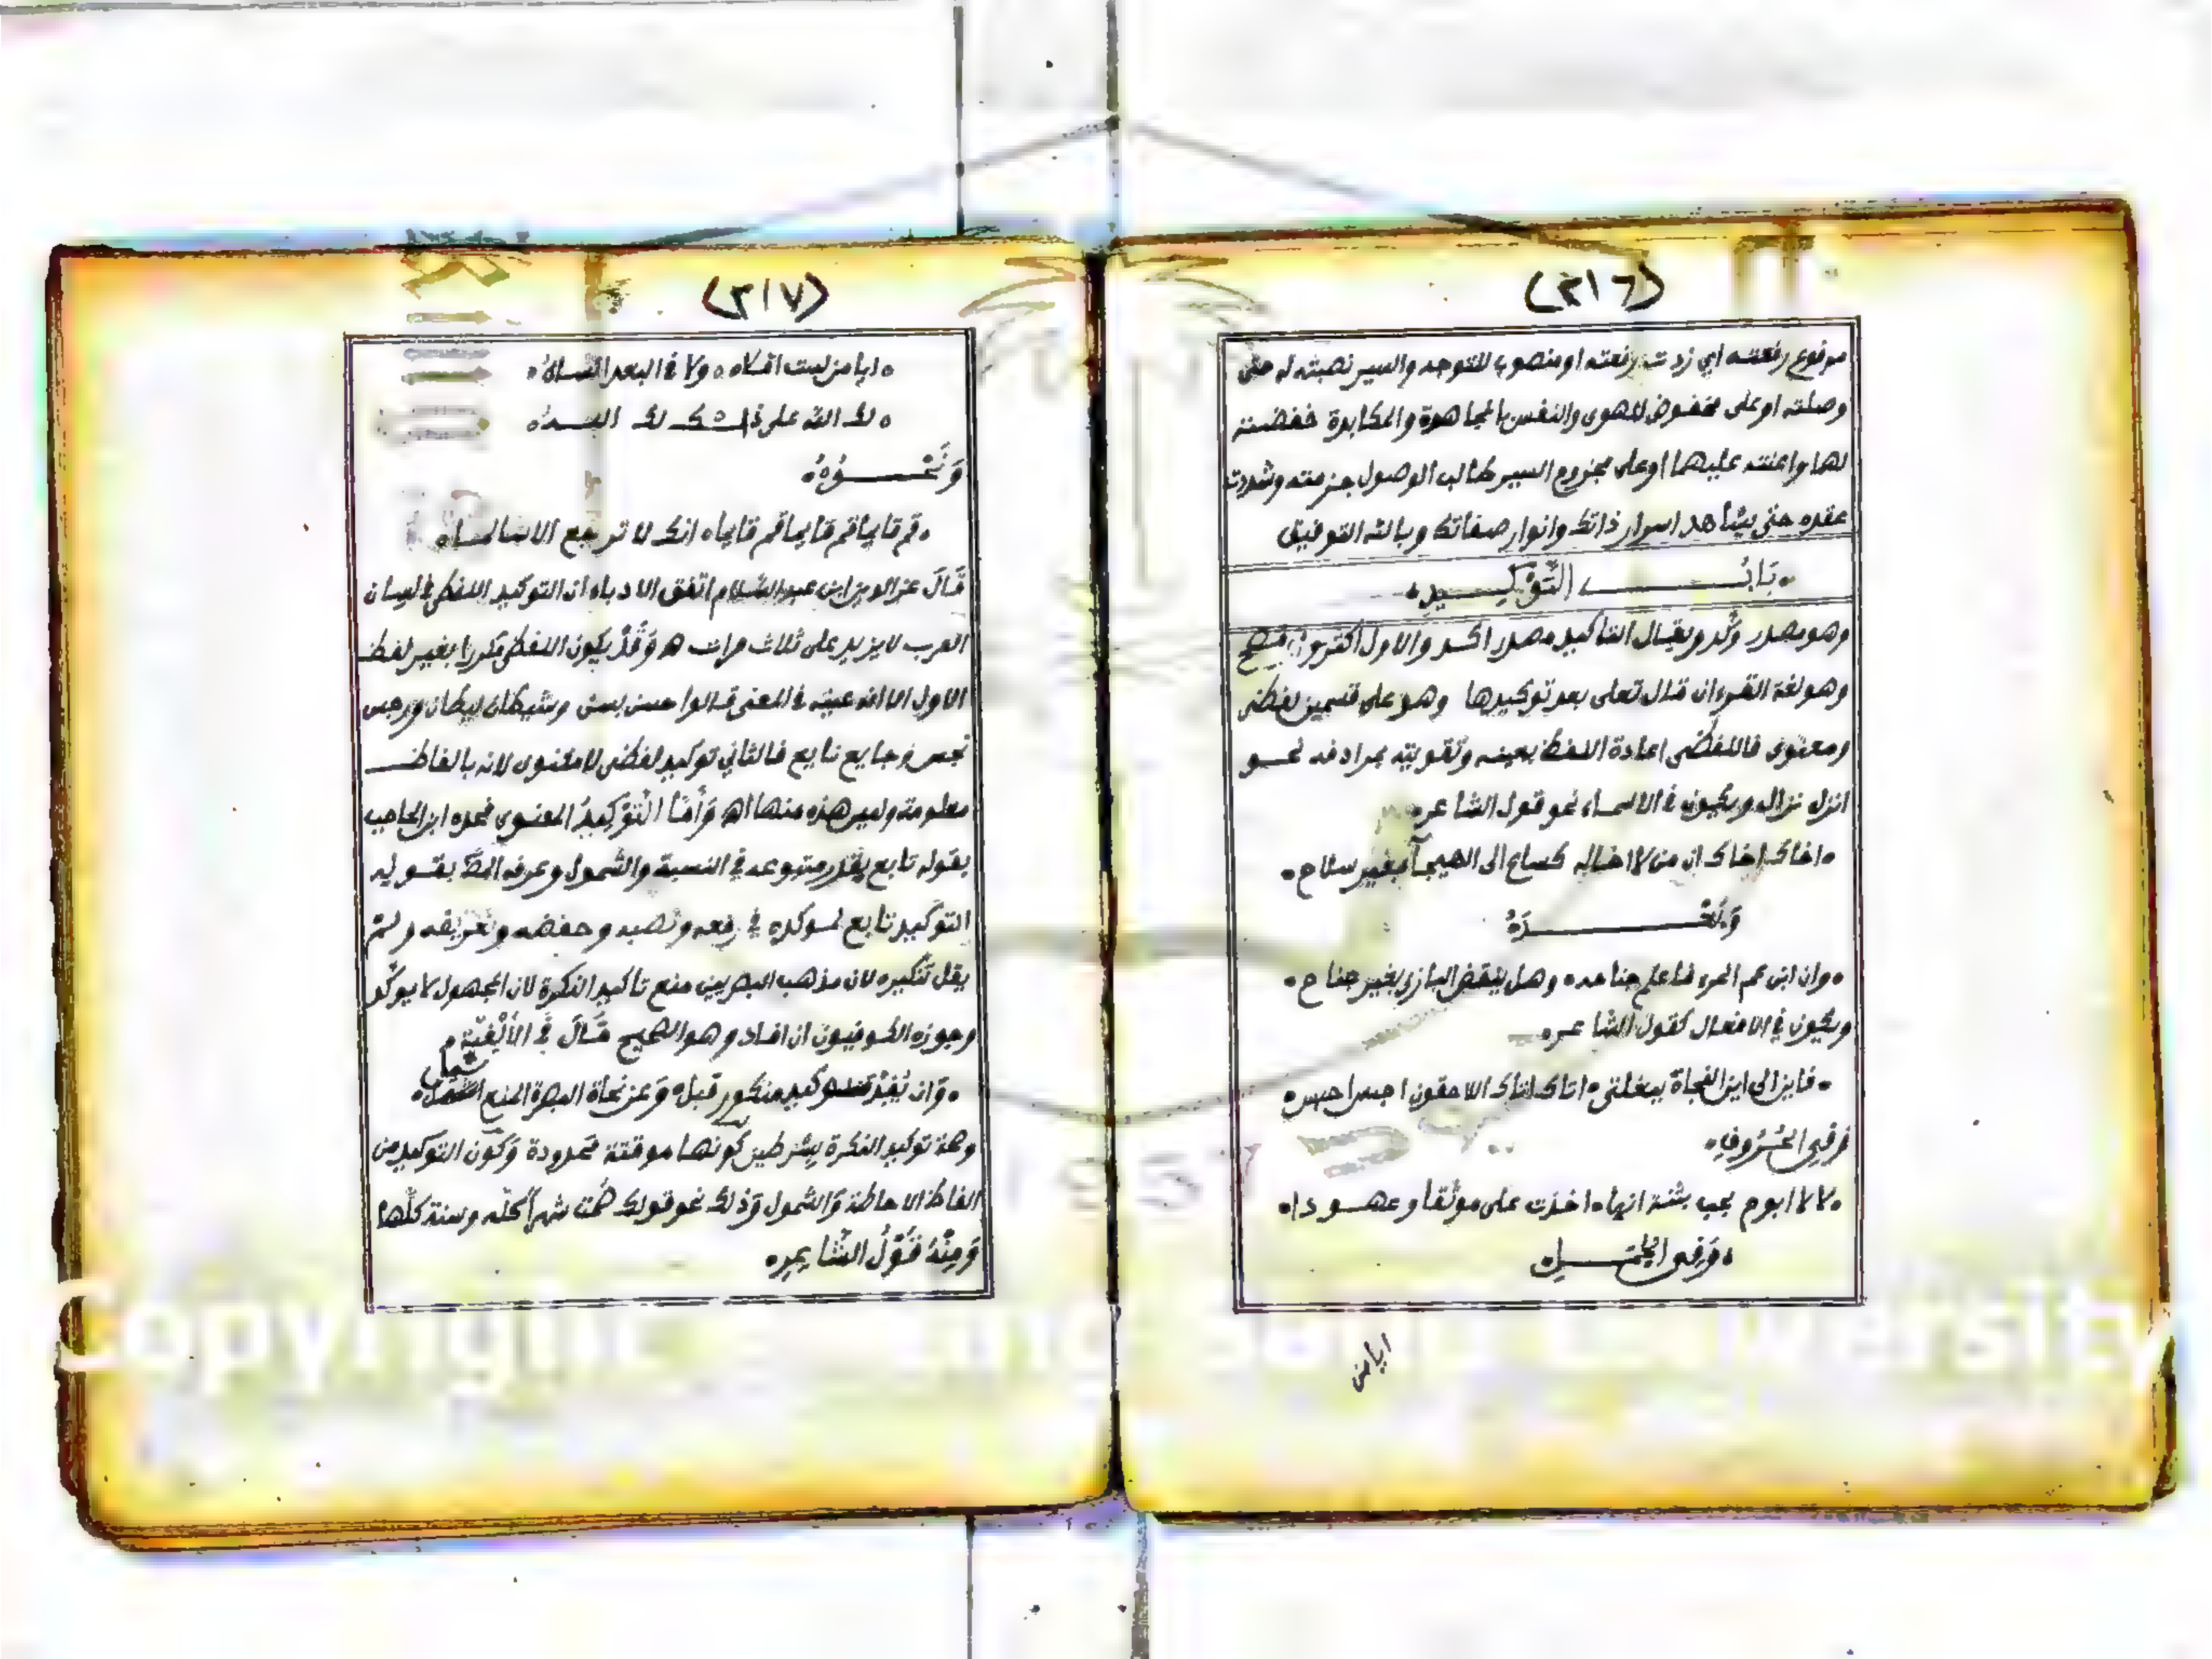 (٢١٦)
مرفوع رفعته اي زدت رفعته او منصوب للتوجه والسير نصبته له حتى
وصلته او على مخفوض للهوى والنفس بالمجاهدة والمكابدة خفضته
لها واعنته عليهما او على مجزوم السير طالب الوصول جزمته وشددت
عقده حتى يشاهد اسرار ذاتك وانوار صفاتك وبالله التوفيق
بَابُ التَّوْكِيدِ
وهو مصدر وكّد ويقال التاكيد مصدر اكد والاول اكثر وافصح
وهو لغة القرءان قال تعلى بعد توكيدها وهو على قسمين لفظي
ومعنوي فاللفظي اعادة اللفظ بعينه وتقويته بمرادفه نحو
انزل نزال ويكون في الاسماء نحو قول الشاعر
اخاك اخاك ان من لا اخاله كساع الى الهيجآ بغير سلاح
وَبَعْدَهُ
وان ابن عم المرء فاعلم جناحه وهل ينهض البازي بغير جناح
ويكون في الافعال كقول الشاعر
فاين الى اين النجاة ببغلتي اتاك اتاك اللاحقون احبس احبس
وَفِي الْحُرُوفِ
لا لا ابوح بحب بثنة انها اخذت على موثقا وعهودا
وَفِي الجُمَلِ
ايا من
(٢١٧)
ايا من لست اقلاه ولا في البعد انساه
لك الله على ذاك لك الله
وَنَحْوُهُ
قم قايما قم قايما قم قايما انك لا ترجع الا سالما
قَالَ عز الدين ابن عبد السَّلام اتفق الادباء ان التوكيد اللفظي في لسان
العرب لا يزيد على ثلاث مرات اه وَقَدْ يكون اللفظى مكررا بغير لفظ
الاول الا انه عينه في المعنى قالوا حسن بسن وشيطان ليطان ورجس
نجس وجايع نايع فالثاني توكيد لفظى لا معنوى لانه بالفاظ
معلومة وليس هذه منها اه وَأَمَّا التَّوْكِيدُ المعنوى فحده ابن الحاجب
بقوله تابع يقرر متبوعه في النسبة والشمول وعرفه المصَ بقوله
التوكيد تابع لموكده في رفعه ونصبه وخفضه وتعريفه ولم
يقل تنكيره لان مذهب البصريين منع تاكيد النكرة لان المجهول لا يوكد
وجوزه الكوفيون ان افاد وهو الصحيح قَالَ فِي الأَلْفِيَّةِ
وَان يُفِدْ توكيد منكور قبل وَعَن نحاة البصرة المنع شمل
وصحة توكيد النكرة بشرطين كونها موقتة محدودة وَكون التوكيد من
الفاظ الاحاطة وَالشمول وَذلك نحو قولك صُمت شهراً كلّه وسنة كلّها
وَمِنْهُ قَوْلُ الشَّاعِرِ